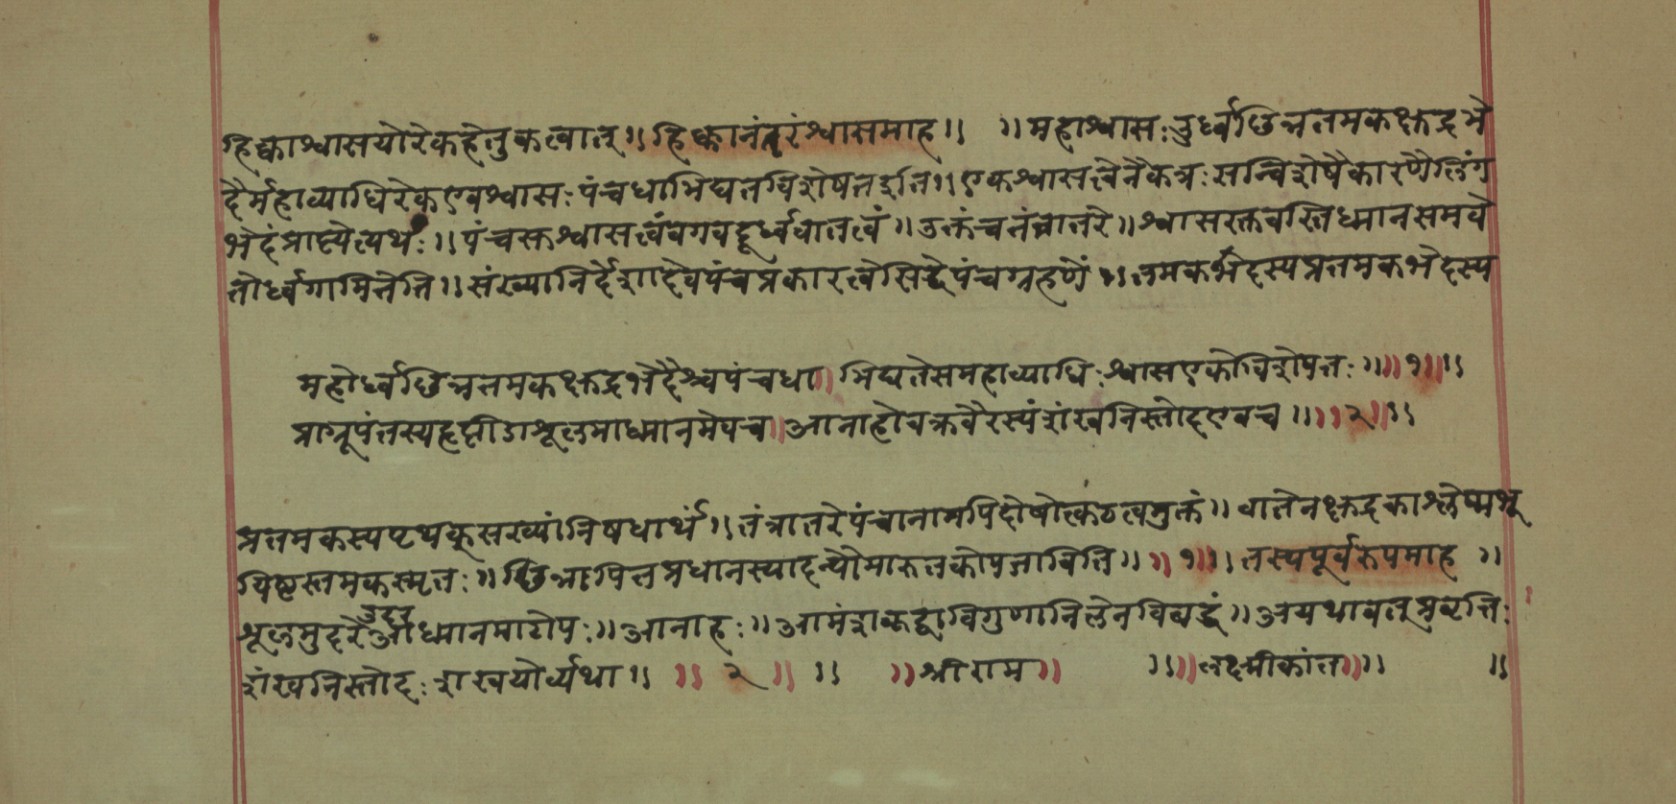 हिक्काश्वासयोरेकहेतुकत्वात्॥हिक्कानंतरंश्वासमाह॥ ॥महाश्वासःउर्ध्वछिन्नतमकक्षुद्रभे
दैर्महाव्याधिरेकएवश्वासःपंचधाभिद्यतविशेषतइति॥एकश्वासत्वेनैकेत्रःसन्विशेषैकारणैलिंग
भेदंप्राप्येत्यर्थः॥पंचस्तश्वासत्वंवेगवदूर्ध्ववातत्वं॥उक्तंचतंत्रातरे॥श्वासरक्तवस्तिध्मानसमवे
तोर्ध्वगामितेति॥संख्यानिर्देशादेवपंचप्रकारत्वेसिद्देपंचग्रहणें॥तमकभेदस्यप्रतमकभेदस्य
महोर्ध्वछिन्नतमकक्षुद्रभेदैश्चपंचधा॥भिद्यतेसमहाव्याधिःश्वासएकोविशेषतः॥॥१॥॥
प्राग्रूपंतस्यहृत्पीडाशूलमाध्मानमेवच॥आनाहोवक्रवैरस्यंशंखनिस्तोदएवच॥॥२॥॥
प्रतमकस्यपृथक्सख्यांनिषधार्थं॥तंत्रातरेपंचानामपिदोषोत्कठत्वमुक्तं॥वातेनक्षुद्रकाश्लेष्मभू
यिष्टस्तमकस्मृतः॥छिन्नःपित्तप्रधानस्यादन्यौमारुतकोपजावितिः॥॥१॥॥तस्यपूर्वरुपमाह॥
शूलमुदरेआध्मानमाटोपः॥आनाहः॥आमंशकृद्वाविगुणानिलेनविबद्धं॥अयथावत्प्रवृत्तिः
उदर
शंखनिस्तोदःशखयोर्व्यथा॥ ॥२॥ ॥ ॥श्रीराम॥ ॥॥लक्ष्मीकांत॥॥ ॥